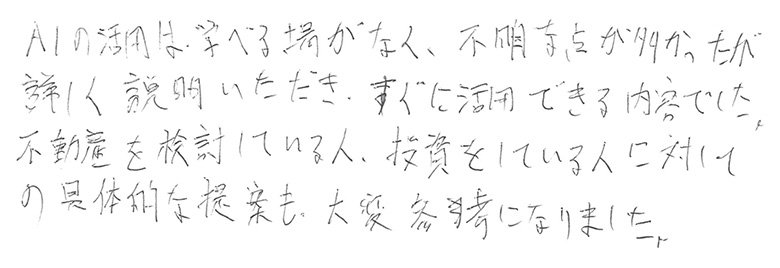 AIの活用は、学べる場がなく、不明な点が多かったが
詳しく説明いただき、すぐに活用できる内容でした。
不動産を検討している人、投資をしている人に対して
の具体的な提案も、大変参考になりました。